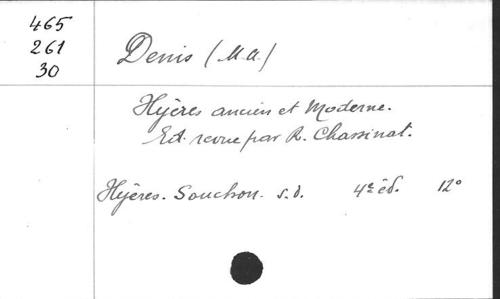 465
261
30
Denis (M.A.)
Hyères ancien et Moderne.
Ed. revue par R. Chassinat.
Hyères. Souchon. s.d. 4e éd. 12°